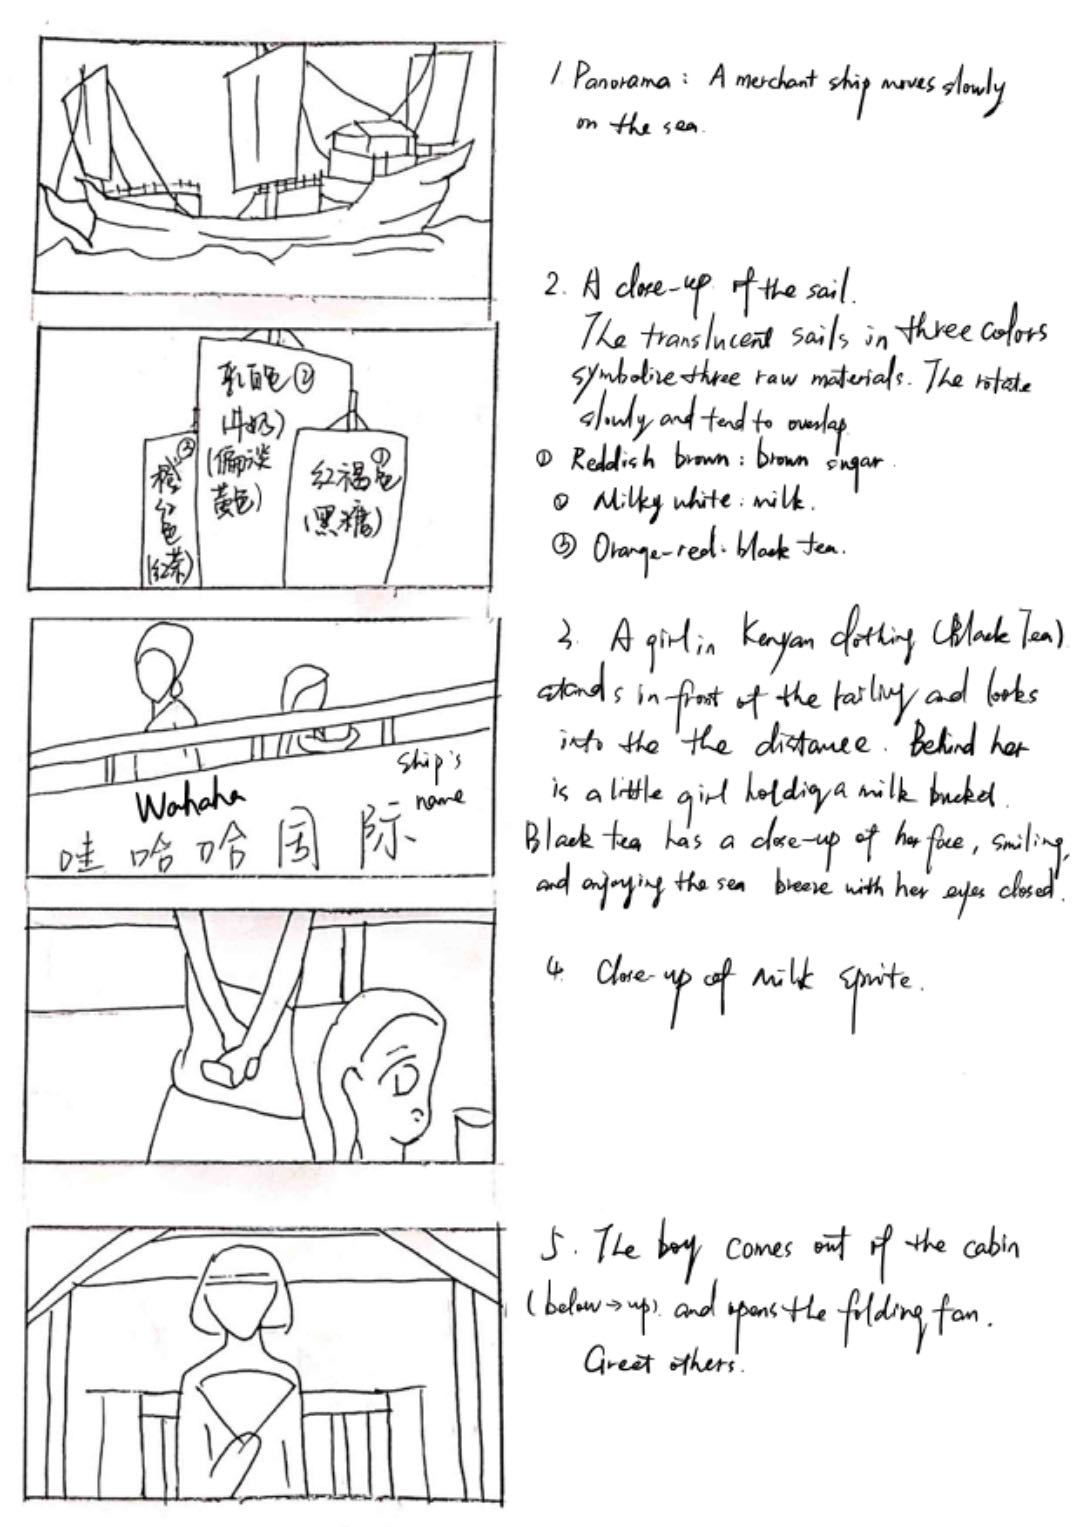 1. Panorama: A merchant ship moves slowly
on the sea.
2. A close-up of the sail.
The translucent sails in three colors
symbolize three raw materials. The rotate
slowly and tend to overlap
① Reddish brown: brown sugar.
② Milky white: milk.
③ Orange-red: black tea.
乳白色②
(牛奶)
(偏淡
黄色)
③
橙
红
色
(红茶)
①
红褐色
(黑糖)
3. A girl in Kenyan clothing (Black Tea)
stands in front of the railing and looks
into the the distance. Behind her
is a little girl holdig a milk bucket.
Black tea has a close-up of her face, smiling,
and enjoying the sea breeze with her eyes closed.
ship's
name
Wahaha
哇哈哈国际
4. Close-up of milk sprite.
5. The boy comes out of the cabin
(below→up). and opens the folding fan.
Greet others.